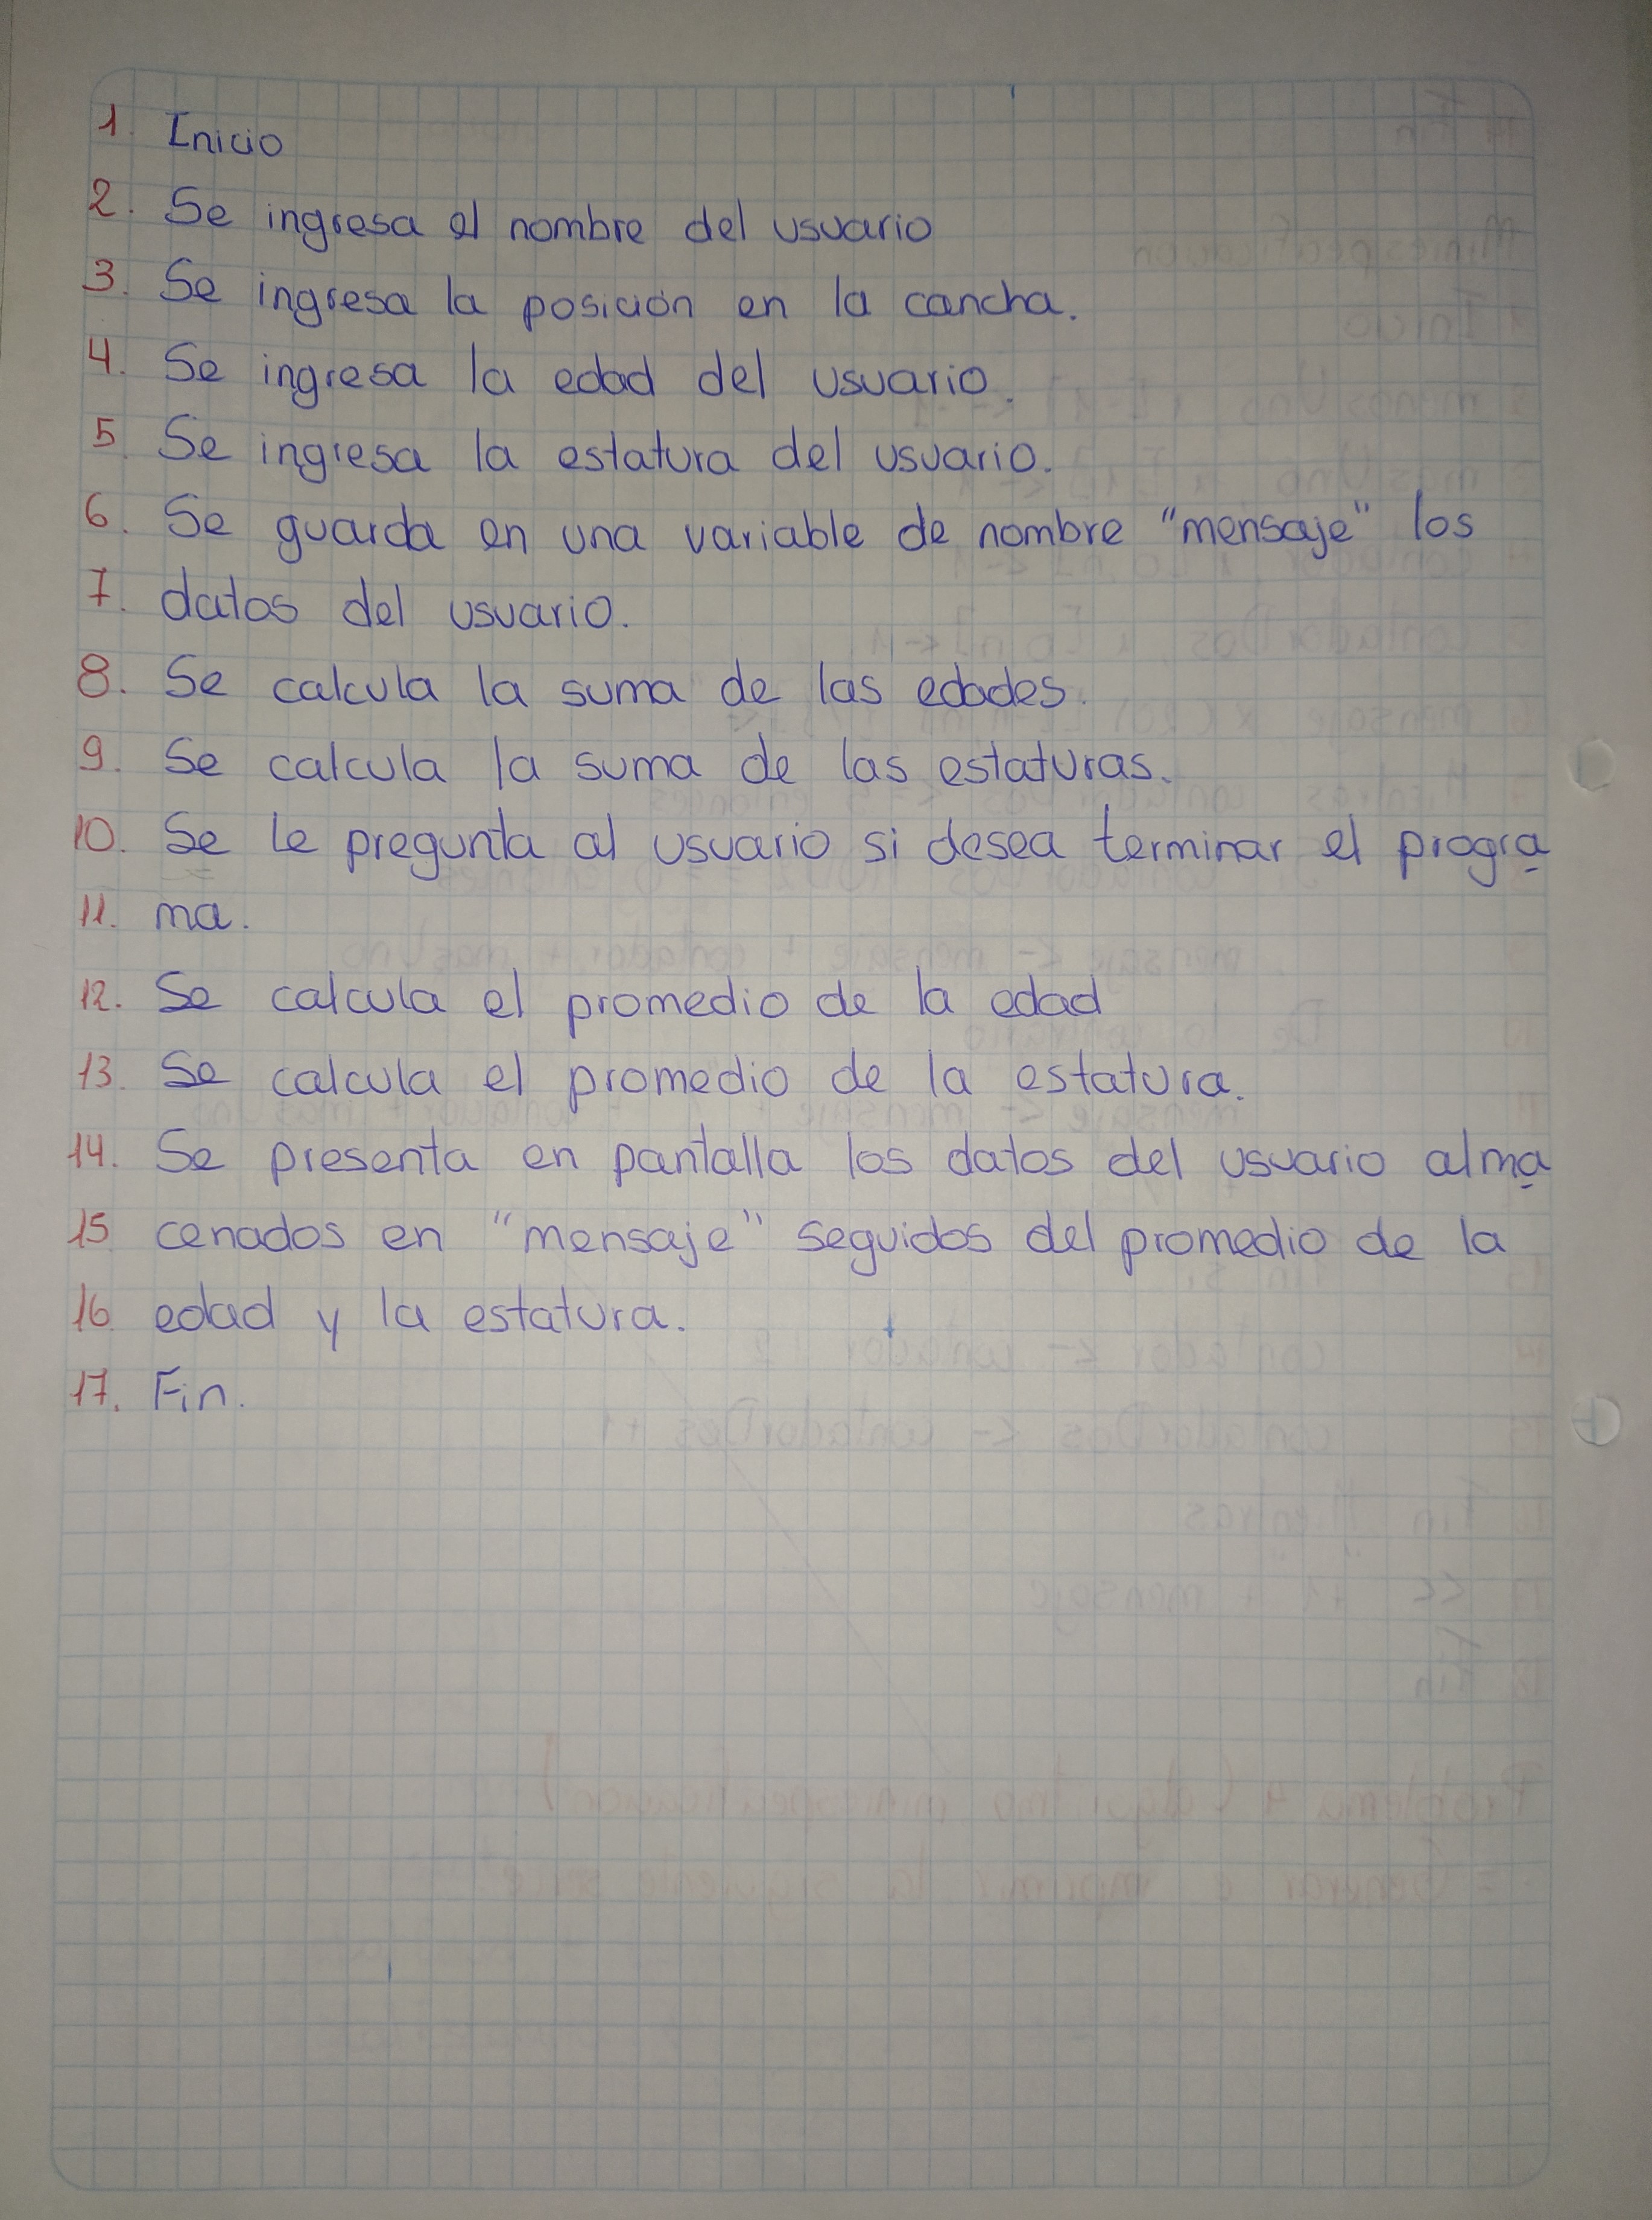 1. Inicio
2. Se ingresa el nombre del usuario
3. Se ingresa la posición en la cancha.
4. Se ingresa la edad del usuario.
5. Se ingresa la estatura del usuario.
6. Se guarda en una variable de nombre "mensaje" los
7. datos del usuario.
8. Se calcula la suma de las edades.
9. Se calcula la suma de las estaturas.
10. Se le pregunta al usuario si desea terminar el progra
11. ma.
12. Se calcula el promedio de la edad
13. Se calcula el promedio de la estatura.
14. Se presenta en pantalla los datos del usuario alma
15 cenados en "mensaje" seguidos del promedio de la
16 edad y la estatura.
17. Fin.